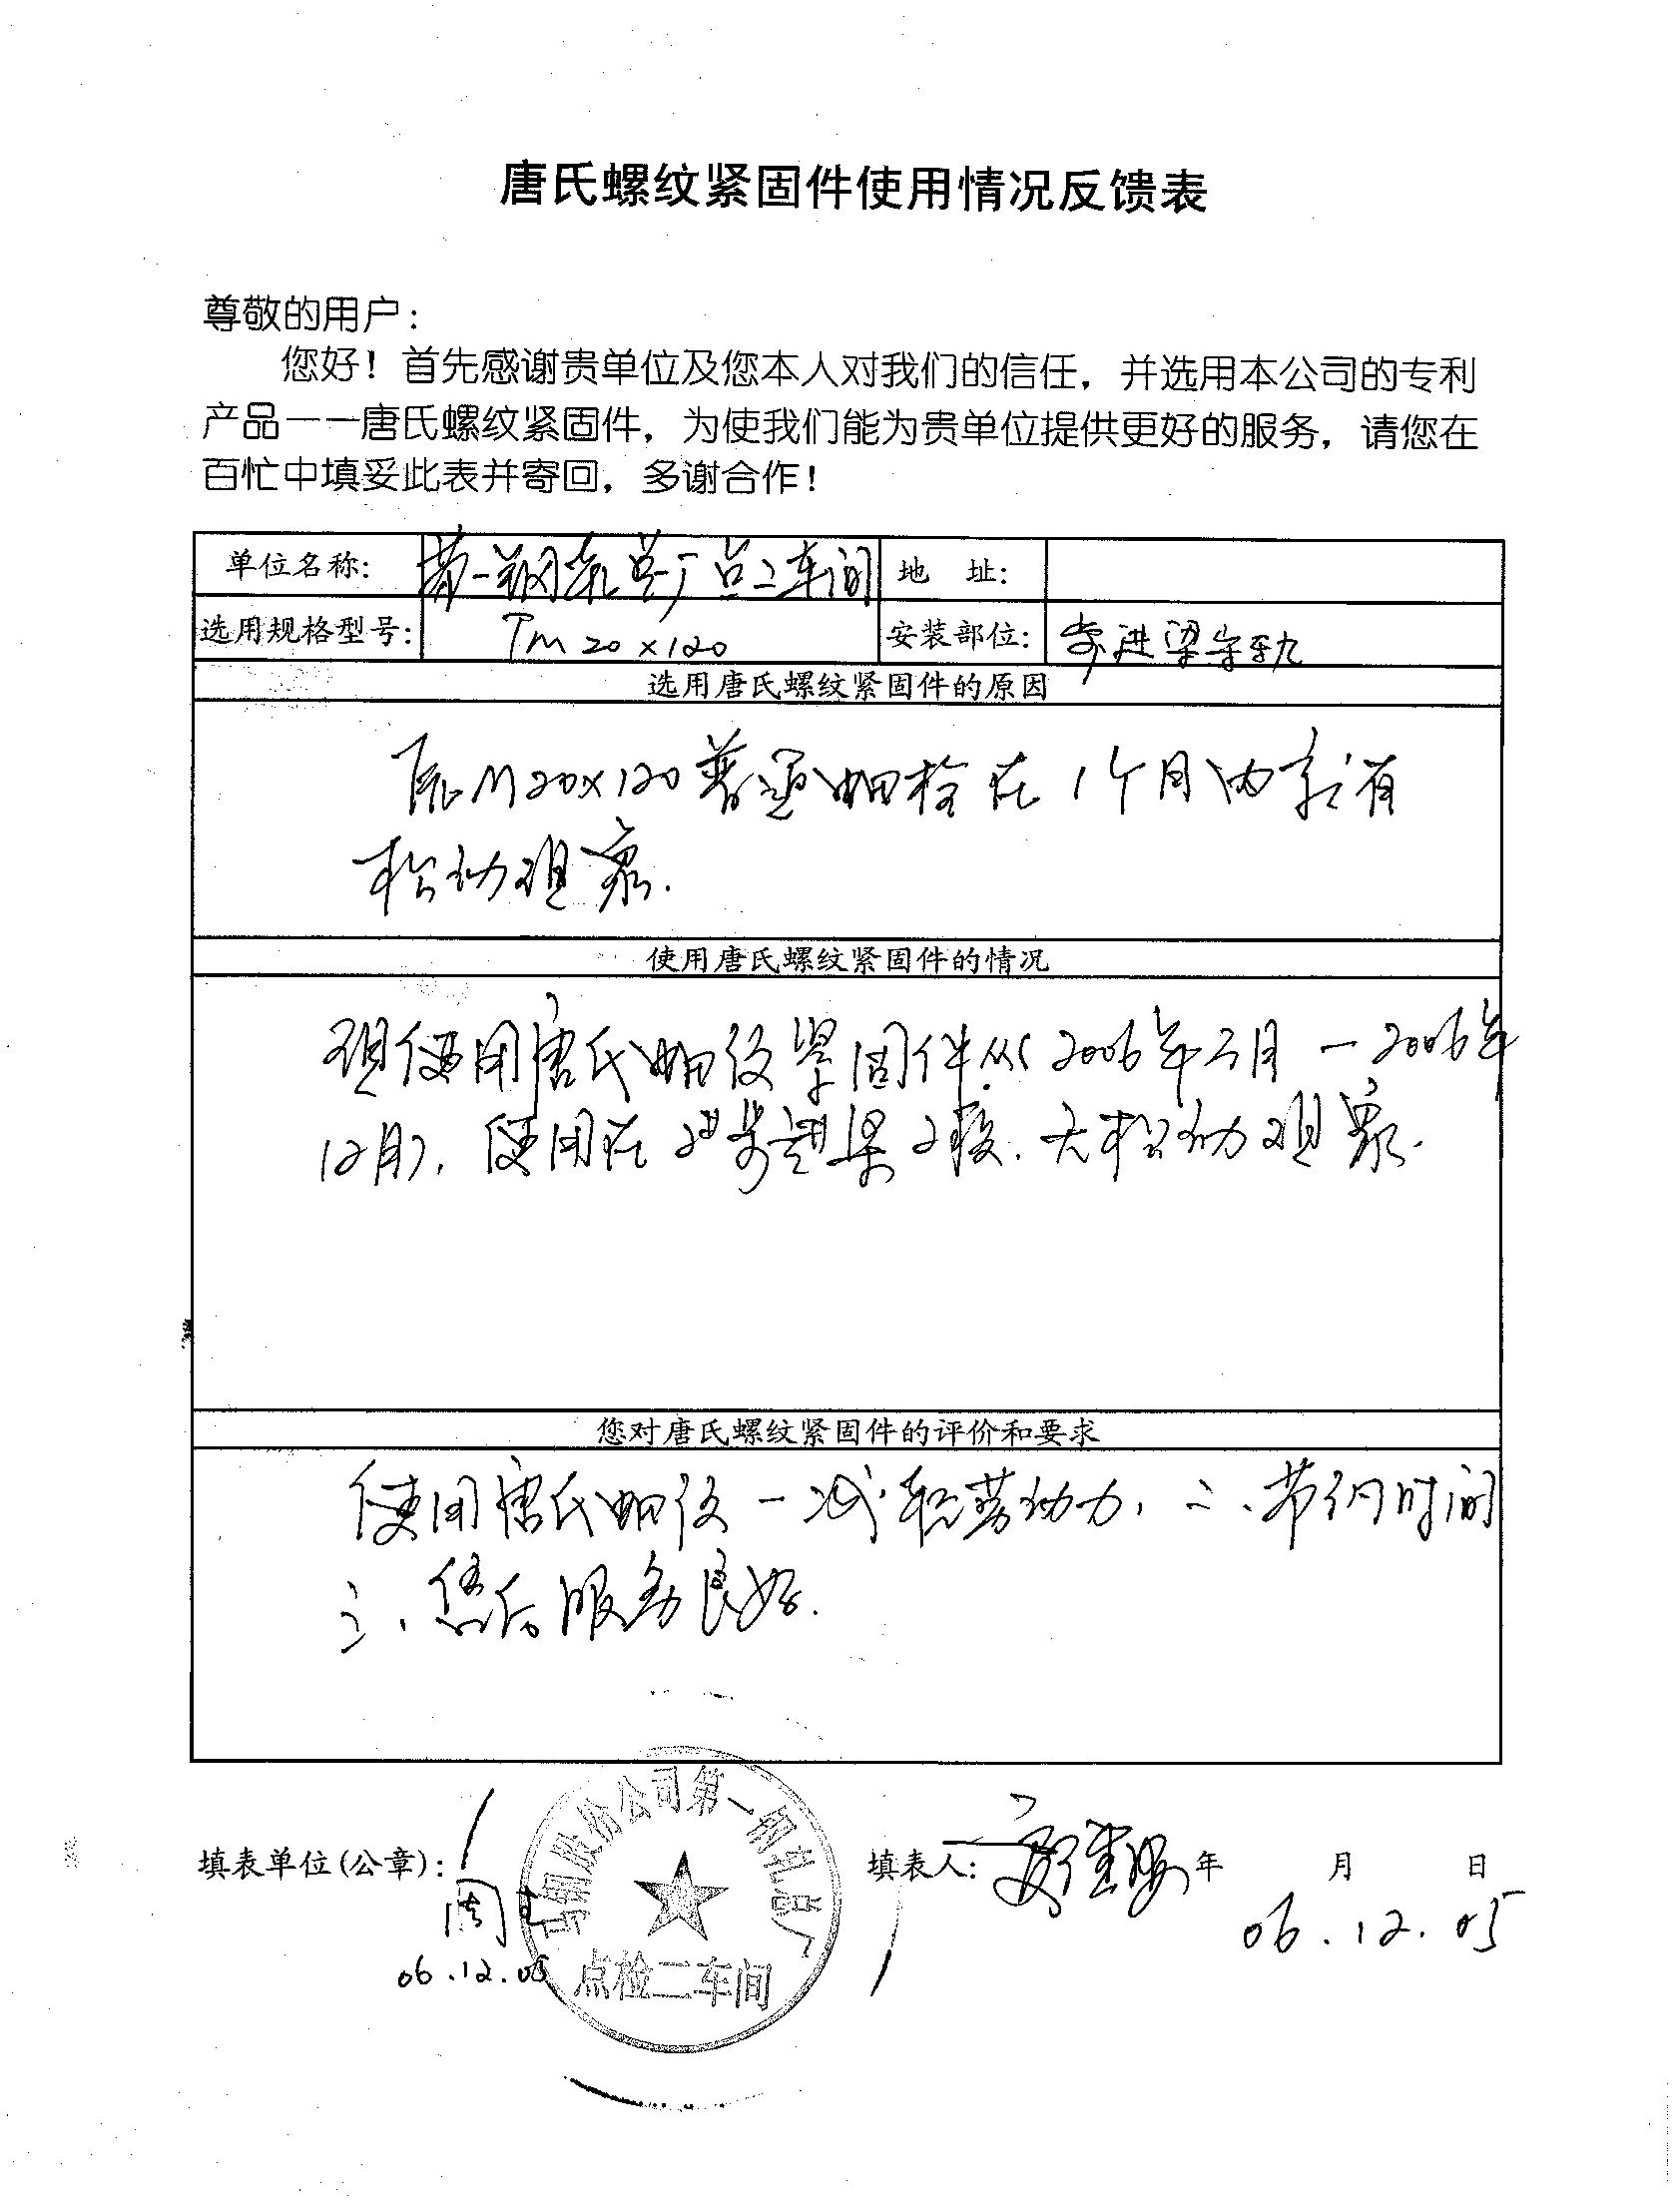 唐氏螺纹紧固件使用情况反馈表
尊敬的用户：
您好！首先感谢贵单位及您本人对我们的信任，并选用本公司的专利
产品——唐氏螺纹紧固件，为使我们能为贵单位提供更好的服务，请您在
百忙中填妥此表并寄回，多谢合作！
单位名称： 第一钢轧总厂点二车间 地 址：
选用规格型号： TM20×120 安装部位： 步进梁导轨
选用唐氏螺纹紧固件的原因
原M20×120普通螺栓在1个月内就有
松动现象.
使用唐氏螺纹紧固件的情况
现使用唐氏螺纹紧固件从2006年3月—2006年
12月，使用在步进梁.无松动现象.
您对唐氏螺纹紧固件的评价和要求
使用唐氏螺纹一减轻劳动力，二、节约时间
三、售后服务良好.
马钢股份公司第一钢轧总厂
填表单位(公章)： 填表人： 年 月 日
周
06.12.05
06.12.05
点检二车间